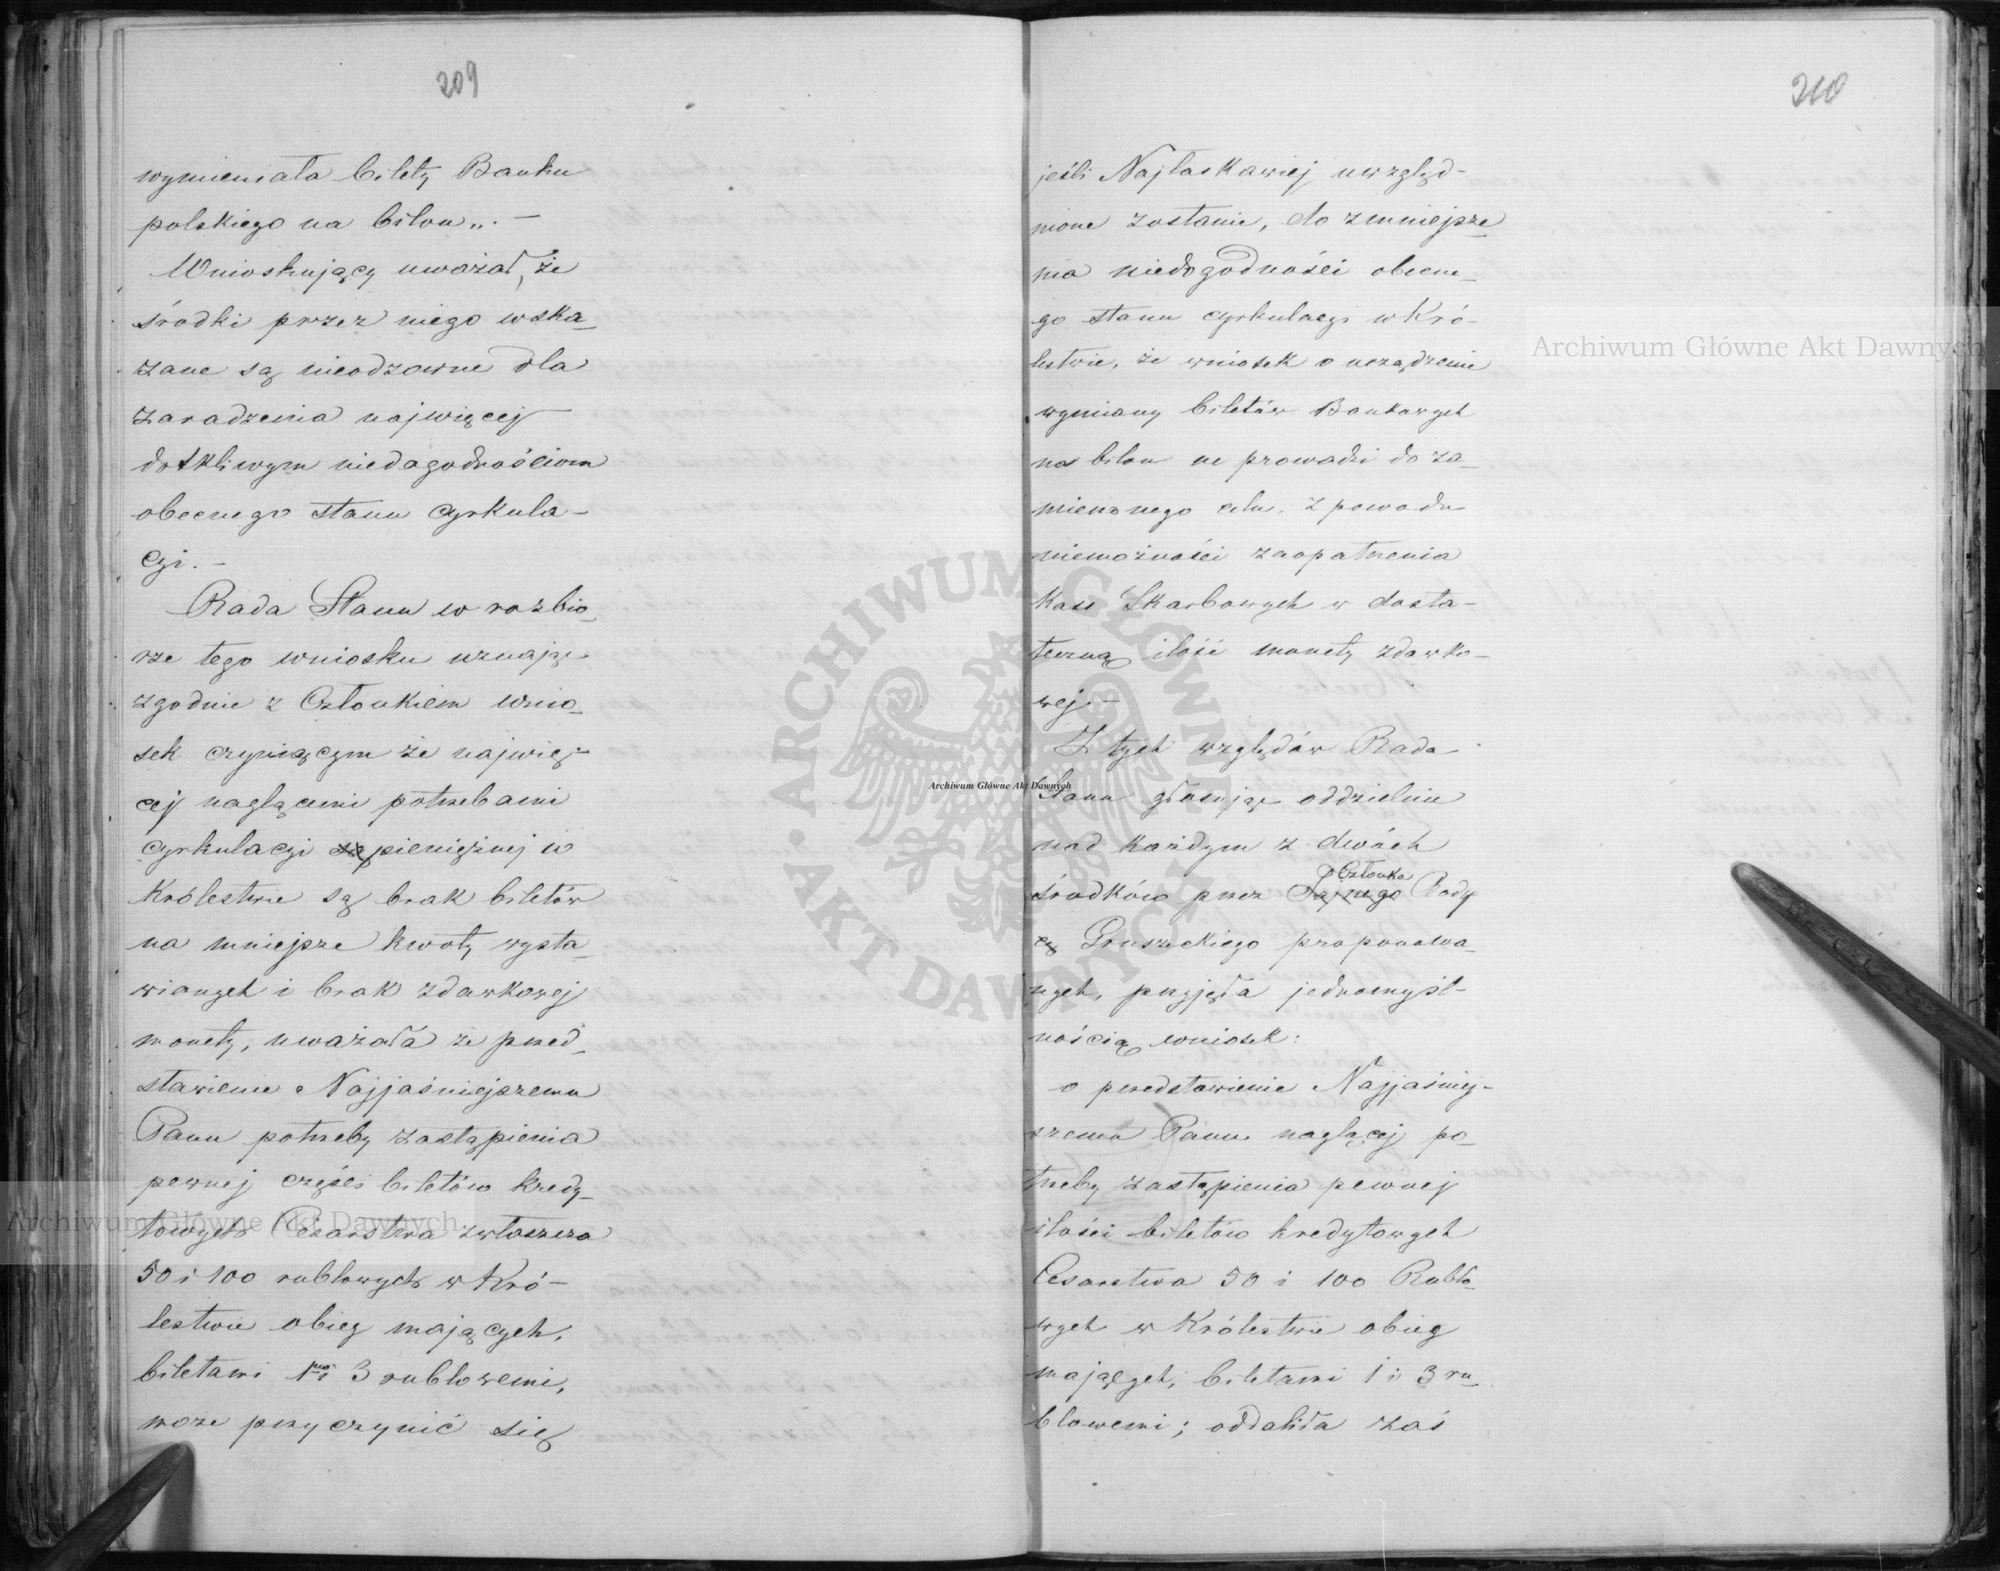 209
wymieniała bilety Banku
polskiego na bilon„. —
Wnioskujący uważał, że
środki przez niego wska-
zane są nieodzowne dla
zaradzenia najwięcej
dotkliwym niedogodnościom
obecnego stanu cyrkula-
cyi. —
Rada Stanu w rozbio-
rze tego wniosku uznając
zgodnie z Członkiem wnio-
sek czyniącym że najwię-
cej naglącemi potrzebami
cyrkulacyi są pieniężnej w
Królestwie są brak biletów
na mniejsze kwoty wysta-
wianych i brak zdawkowej
monety, uważała że przed-
stawienie Najjaśniejszemu
Panu potrzeby zastąpienia
pewnej części biletów kredy-
towych Cesarstwa zwłaszcza
50 i 100 rublowych w Kró-
lestwie obieg mających,
biletami 1no i 3 rublowemi,
może przyczynić się
210
jeśli Najłaskawiej uwzględ-
nione zostanie, do zmniejsze-
nia niedogodności obecne-
go stanu cyrkulacyi w Kró-
lestwie, że wniosek o urządzenie
wymiany biletów Bankowych
na bilon ne prowadzi do za-
mierzonego celu, z powodu
niemożności zaopatrzenia
Kass Skarbowych w dosta-
teczną ilość monety zdawko-
wej. —
Z tych względów Rada
Stanu głosując oddzielnie
nad każdym z dwóch
Członka
środków przez Rady
Gruszeckiego proponowa-
nych, przyjęła jednomyśl-
nością wniosek:
o przedstawienie Najjaśniej-
szemu Panu naglącej po-
trzeby zastąpienia pewnej
ilości biletów kredytowych
Cesarstwa 50 i 100 Rublo-
wych w Królestwie obieg
mających, biletami 1 i 3 ru-
blowemi; oddaliła zaś
Archiwum Główne Akt Dawnych
Archiwum Główne Akt Dawnych
Archiwum Główne Akt Dawnych
ARCHIWUM GŁÓWNE • AKT DAWNYCH